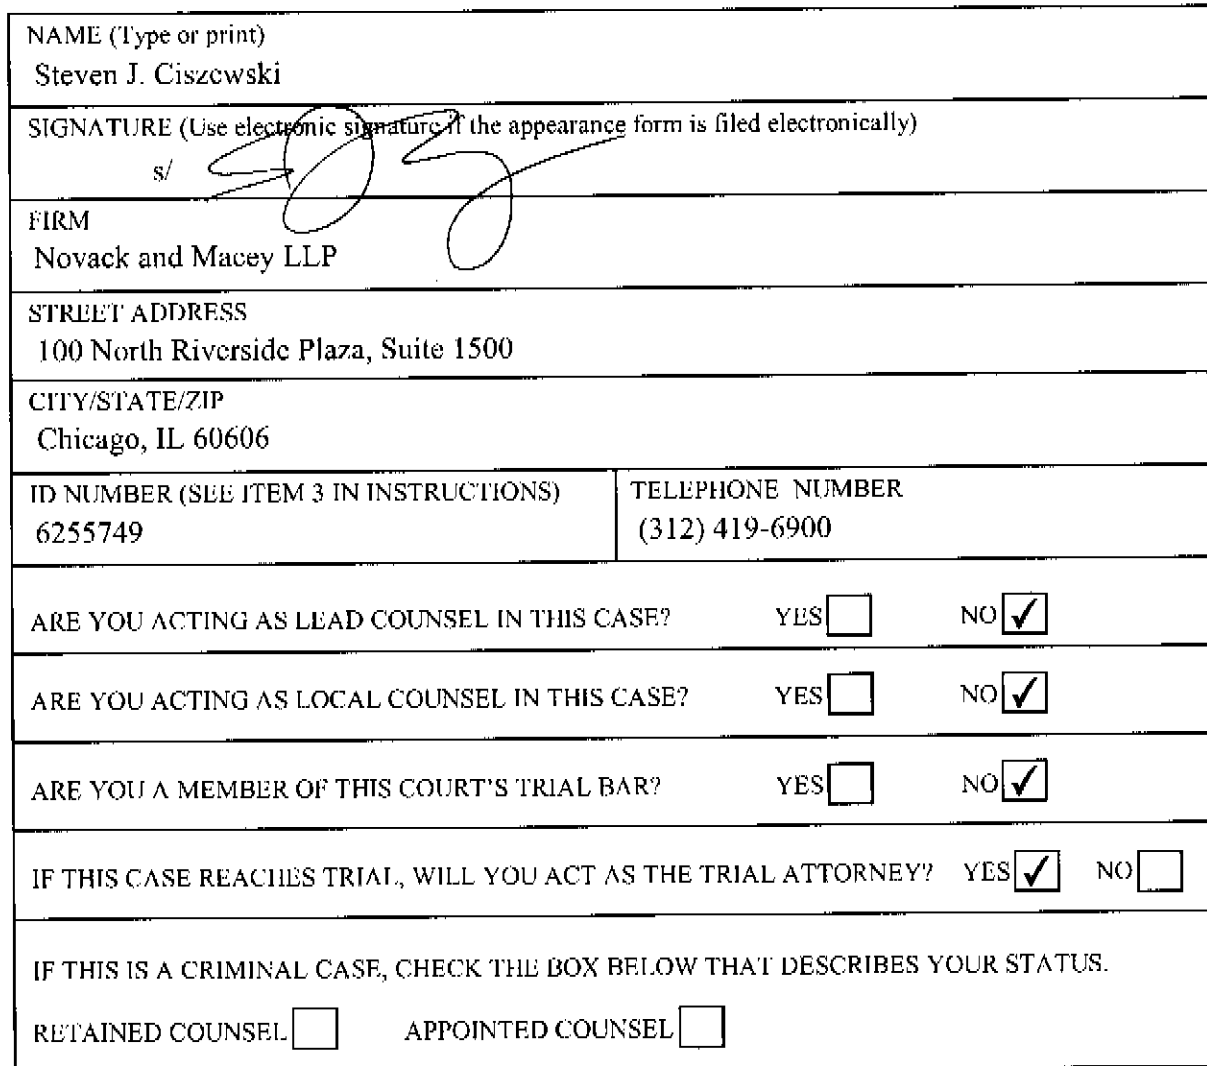 NAME (Type or print)
Steven J. Ciszewski
SIGNATURE (Use electronic signature if the appearance form is filed electronically)
s/
FIRM
Novack and Macey LLP
STREET ADDRESS
100 North Riverside Plaza, Suite 1500
CITY/STATE/ZIP
Chicago, IL 60606
ID NUMBER (SEE ITEM 3 IN INSTRUCTIONS) TELEPHONE NUMBER
6255749 (312) 419-6900
ARE YOU ACTING AS LEAD COUNSEL IN THIS CASE? YES NO ✓
ARE YOU ACTING AS LOCAL COUNSEL IN THIS CASE? YES NO ✓
ARE YOU A MEMBER OF THIS COURT'S TRIAL BAR? YES NO ✓
IF THIS CASE REACHES TRIAL, WILL YOU ACT AS THE TRIAL ATTORNEY? YES ✓ NO
IF THIS IS A CRIMINAL CASE, CHECK THE BOX BELOW THAT DESCRIBES YOUR STATUS.
RETAINED COUNSEL APPOINTED COUNSEL